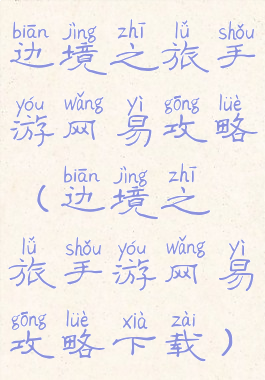 biān jìng zhī lǚ shǒu
边境之旅手
yóu wǎng yì gōng lüè
游网易攻略
biān jìng zhī
（边境之
lǚ shǒu yóu wǎng yì
旅手游网易
gōng lüè xià zài
攻略下载）